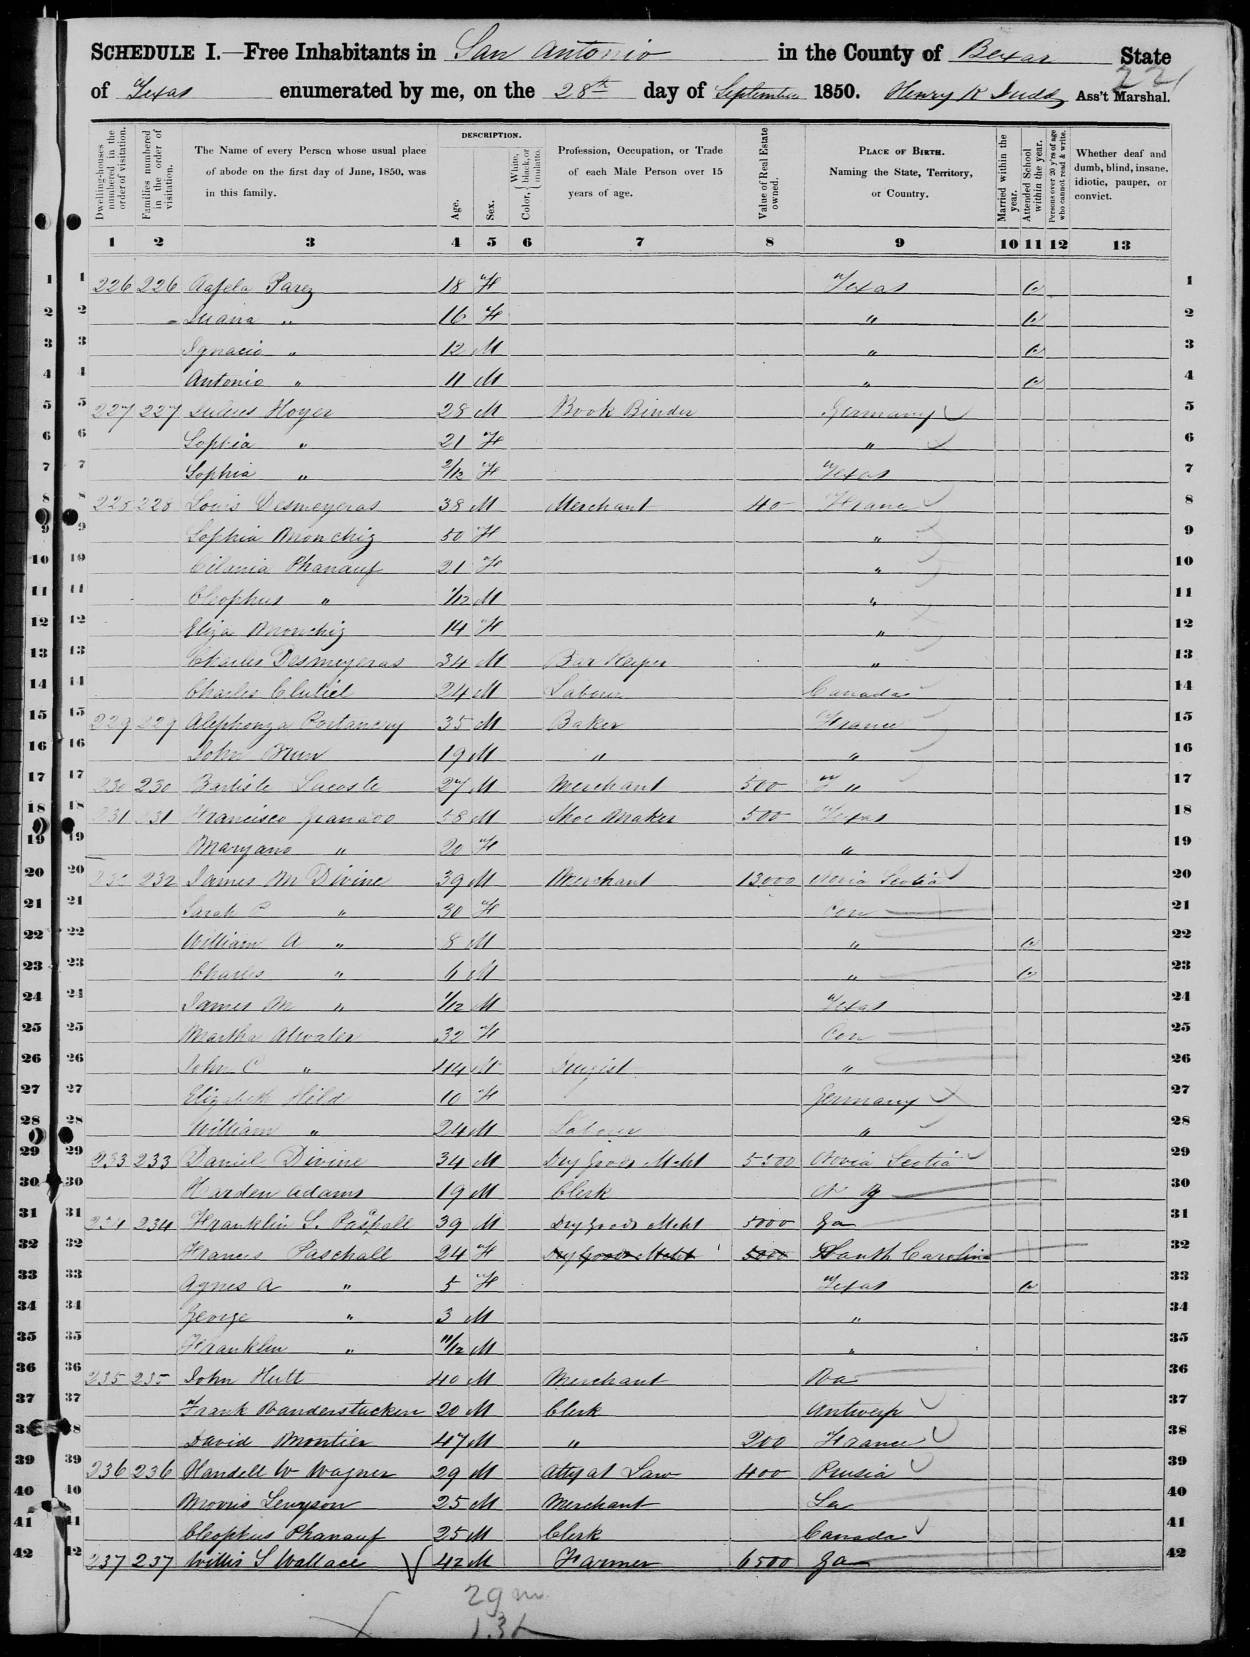 SCHEDULE I.—Free Inhabitants in San Antonio in the County of Bexar State
of Texas enumerated by me, on the 28th day of September 1850. Henry K Judd Ass't Marshal.
221
Dwelling-houses numbered in the order of visitation.
Families numbered in the order of visitation.
The Name of every Person whose usual place of abode on the first day of June, 1850, was in this family.
DESCRIPTION.
Age.
Sex.
Color, White, black, or mulatto.
Profession, Occupation, or Trade of each Male Person over 15 years of age.
Value of Real Estate owned.
PLACE OF BIRTH. Naming the State, Territory, or Country.
Married within the year.
Attended School within the year.
Persons over 20 y'rs of age who cannot read & write.
Whether deaf and dumb, blind, insane, idiotic, pauper, or convict.
1 2 3 4 5 6 7 8 9 10 11 12 13
1 1 226 226 Parez 18 F Texas 1
2 2 Juana " 16 F " 2
3 3 Ignacio " 12 M " 3
4 4 Antonio " 11 M " 4
5 5 227 227 Julius Hoyer 28 M Book Binder Germany 5
6 6 Sophia " 21 F " 6
7 7 Sophia " 2/12 F Texas 7
8 8 228 228 Louis Desmeyeras 38 M Merchant 40 France 8
9 9 Sophia Monchiz 50 F " 9
10 10 Phanauf 21 F " 10
11 11 Cleophus " 1/12 M " 11
12 12 Eliza Monchiz 14 F " 12
13 13 Charles Desmeyeras 34 M Bar Keeper " 13
14 14 Charles Clutiel 24 M Labour Canada 14
15 15 229 229 Alephonza 35 M Baker France 15
16 16 John 19 M " " 16
17 17 230 230 Bartiste Lacoste 27 M Merchant 500 " 17
18 18 231 231 Francisco Granado 58 M Shoe Maker 500 Texas 18
19 19 Maryano " 20 F " 19
20 20 232 232 James M Divine 39 M Merchant 13000 Novia Scotia 20
21 21 Sarah C " 30 F Con 21
22 22 William A " 8 M " 22
23 23 Charles " 6 M " 23
24 24 James M " 1/12 M Texas 24
25 25 Martha Atwater 32 F Con 25
26 26 John C " 44 M Drugist " 26
27 27 Elizabeth Hild 10 F Germany 27
28 28 William " 24 M Labour " 28
29 29 233 233 Daniel Divine 34 M Dry Goods Mcht 5500 Novia Scotia 29
30 30 Harden Adams 19 M Clerk N Y 30
31 31 234 234 Franklin L. Paschall 39 M Dry Goods Mcht 5000 Ga 31
32 32 Frances Paschall 24 F Dry Goods Mcht 5000 South Carolina 32
33 33 Agnes A " 5 F Texas 33
34 34 George " 3 M " 34
35 35 Franklin " 11/12 M " 35
36 36 235 235 John Hull 40 M Merchant Va 36
37 37 Frank Vanderstucken 20 M Clerk Antwerp 37
38 38 David Montier 47 M " 200 France 38
39 39 236 236 Handell W Wagner 29 M Atty at Law 400 Prusia 39
40 40 Morris Levyson 25 M Merchant La 40
41 41 Cleophus Phanauf 25 M Clerk Canada 41
42 42 237 237 Willis S Wallace 42 M Farmer 6500 Ga 42
29 m
13 f